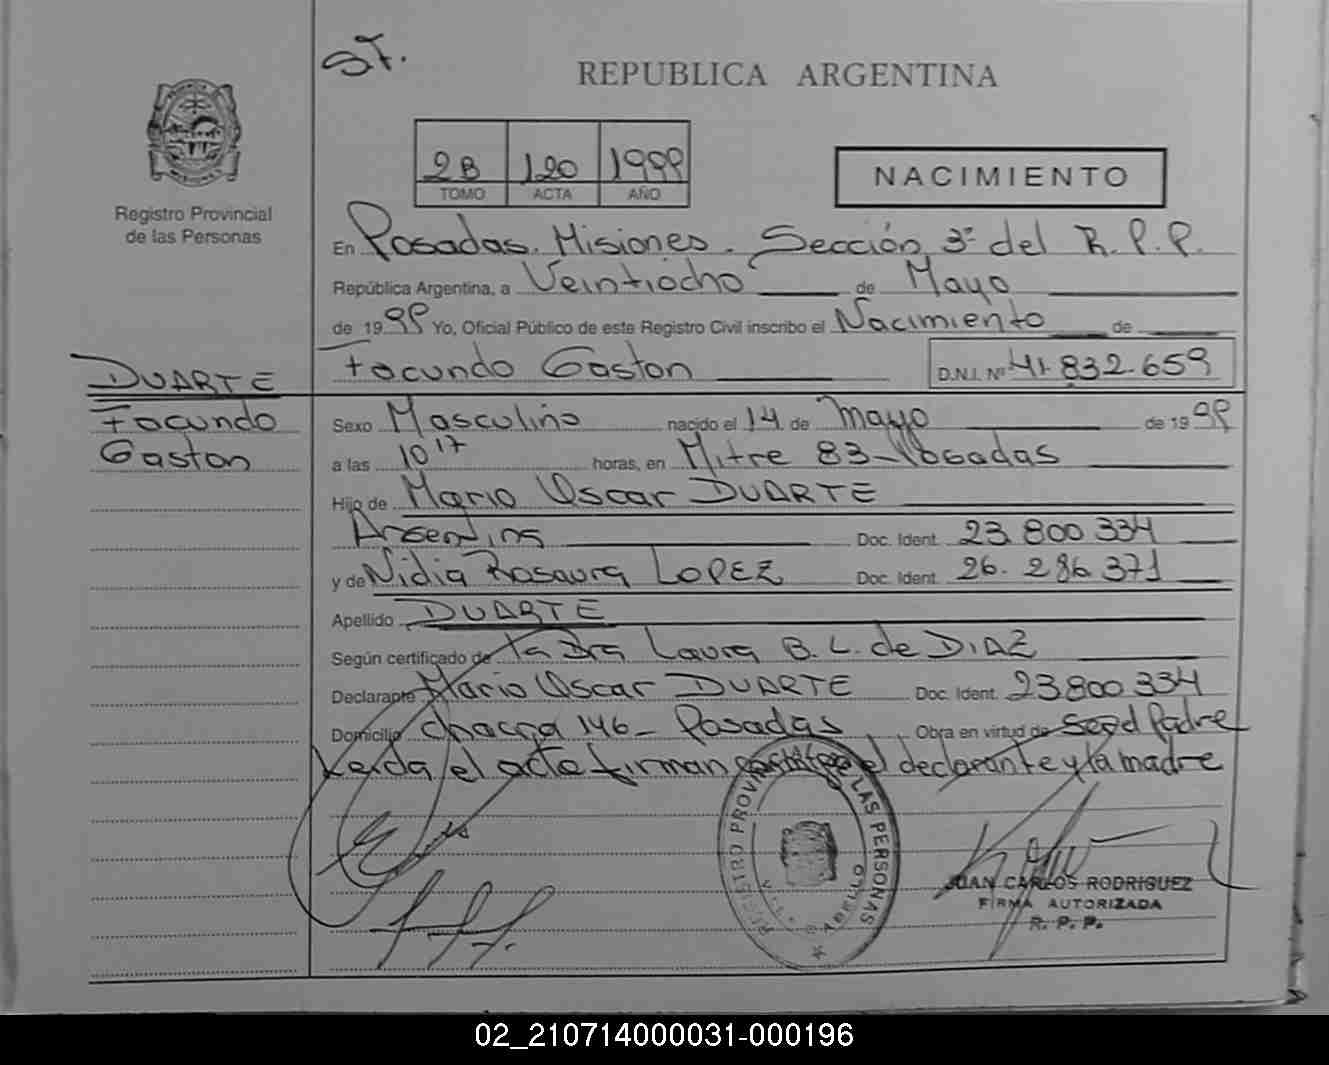 ST.
REPUBLICA ARGENTINA
2B 120 1999
TOMO ACTA AÑO
NACIMIENTO
Registro Provincial
de las Personas
En Posadas. Misiones. Sección 3ª del R.P.P.
República Argentina, a Veintiocho de Mayo
de 1999 Yo, Oficial Público de este Registro Civil inscribo el Nacimiento de
Facundo Gaston D.N.I. Nº 41.832.659
DUARTE
Facundo
Gaston
Sexo Masculino nacido el 14 de Mayo de 1999
a las 10 17 horas, en Mitre 83-Posadas
Hijo de Mario Oscar DUARTE
Argentina Doc. Ident. 23.800.334
y de Nidia Rosaura LOPEZ Doc. Ident. 26.286.371
Apellido DUARTE
Según certificado de la Dra Laura B. L. de DIAZ
Declarante Mario Oscar DUARTE Doc. Ident. 23800334
Domicilio chacra 146- Posadas Obra en virtud de ser el Padre
Leida el acta firman el declarante y la madre
REGISTRO PROVINCIAL DE LAS PERSONAS
JUAN CARLOS RODRIGUEZ
FIRMA AUTORIZADA
R. P. P.
02_210714000031-000196